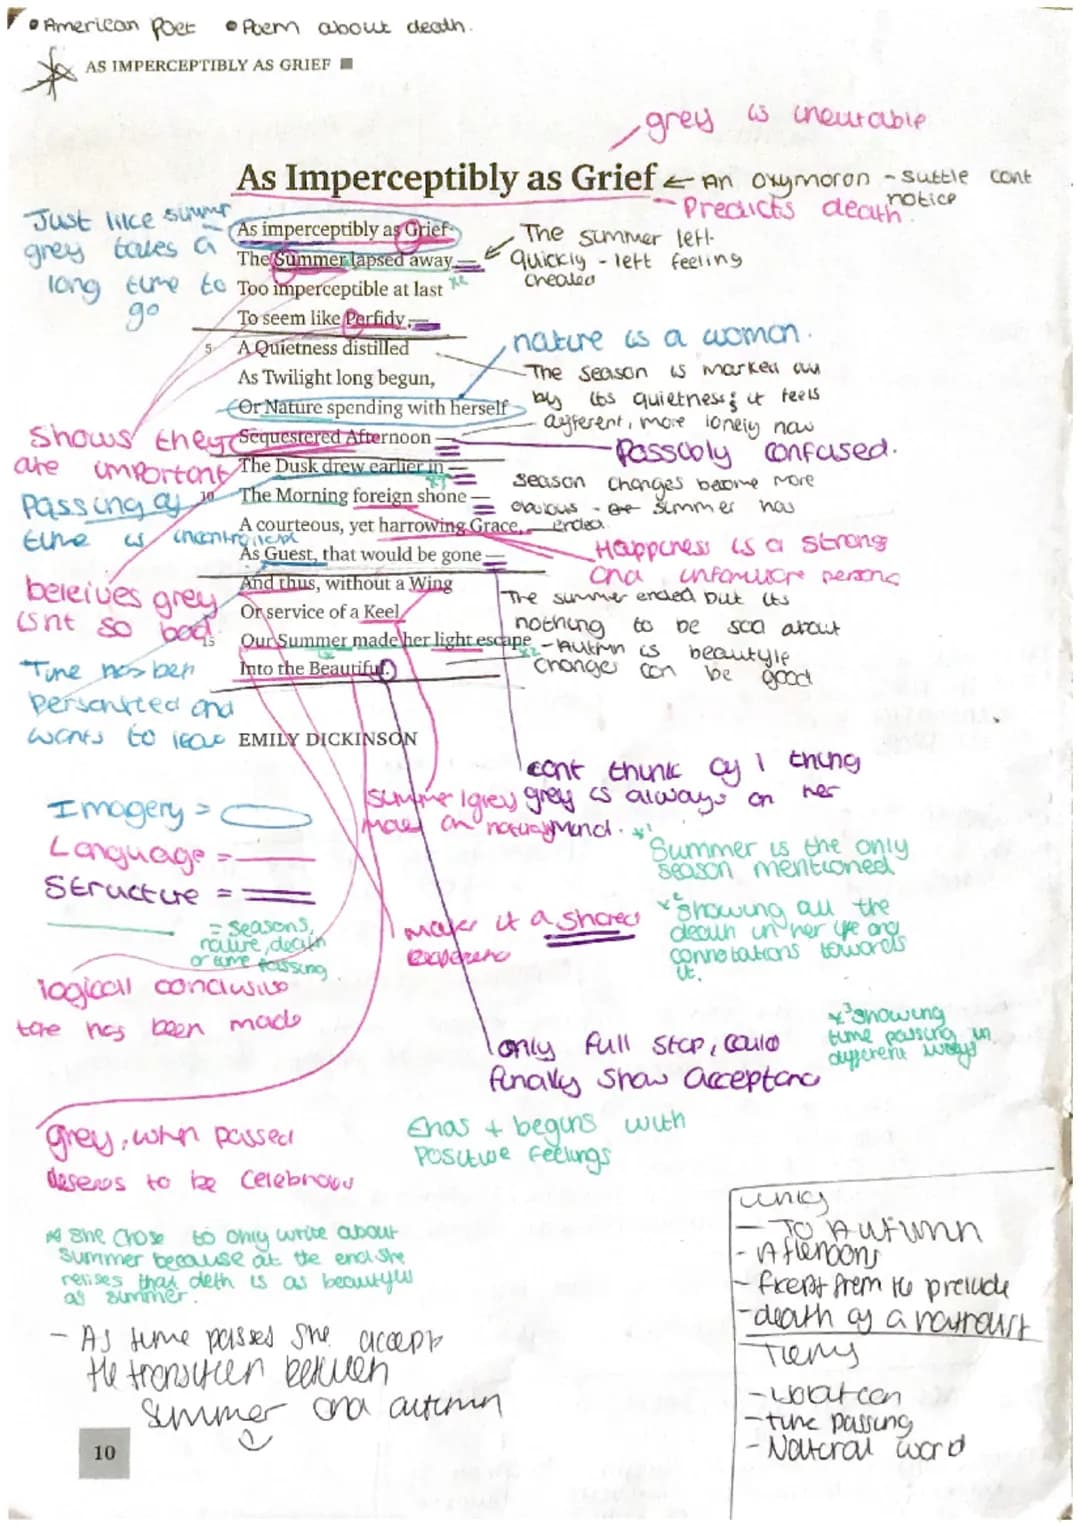 • American Poet • Poem about death.
AS IMPERCEPTIBLY AS GRIEF
grey is ineutable
As Imperceptibly as Grief
← An oxymoron - suttle cont notice
Predicts death.
Just like summer
grey takes a
long time to
go
As imperceptibly as Grief
The Summer lapsed away —
Too imperceptible at last
To seem like Perfidy —
5 A Quietness distilled
As Twilight long begun,
Or Nature spending with herself
Sequestered Afternoon —
The Dusk drew earlier in —
10 The Morning foreign shone —
A courteous, yet harrowing Grace,
As Guest, that would be gone —
And thus, without a Wing
Or service of a Keel
15 Our Summer made her light escape
Into the Beautiful.
EMILY DICKINSON
The summer left
quickly - left feeling
cheated
nature is a woman.
The season is marked out
by its quietness; it feels
different, more lonely now
Possibly confused.
season changes become more
obvious - summer has
ended.
Happiness is a strong
and unfamiliare persona
The summer ended but its
nothing to be sad about
- Autmn is beautyle
changes can be good
Shows they
are important
Passing of
time is
beleives grey
isnt so bad
Time has ben
persanited and
wants to leave
cont think of 1 thing
grey is always on her
mind.
summer/grey
makes it a shared
Experience
Imagery =
Language =
Structure =
= seasons,
nature, death
or time passing.
*1 Summer is the only
season mentioned
*2 showing all the
death in her life and
connotations towards
it.
*3 showing
time passing in
different ways
logicall conclusion
has been made
only full stop, could
finally show acceptance
grey, when passed
deserves to be celebrated
Ends + begins with
positive feelings
* she chose to only write about
summer because at the end she
relises that deth is as beautyful
as summer.
- As time passes she accept
the transition between
summer and autumn
10
links
- To Autumn
- Afternoons
- Exept from the prelude
- death of a naturalist
Themes
- time passing
- Natural world